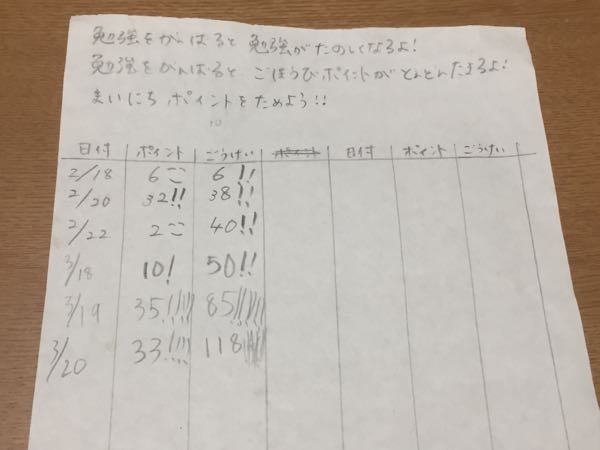 勉強をがんばると 勉強がたのしくなるよ!
勉強をがんばると ごほうびポイントがどんどんたまるよ!
まいにち ポイントをためよう!!
10
日付 ポイント ごうけい ポイント 日付 ポイント ごうけい
2/18 6こ 6!!
2/20 32!! 38!!
2/22 2こ 40!!
3/18 10! 50!!
3/19 35!!!!! 85!!!!!!
3/20 33!!!! 118!!!!!